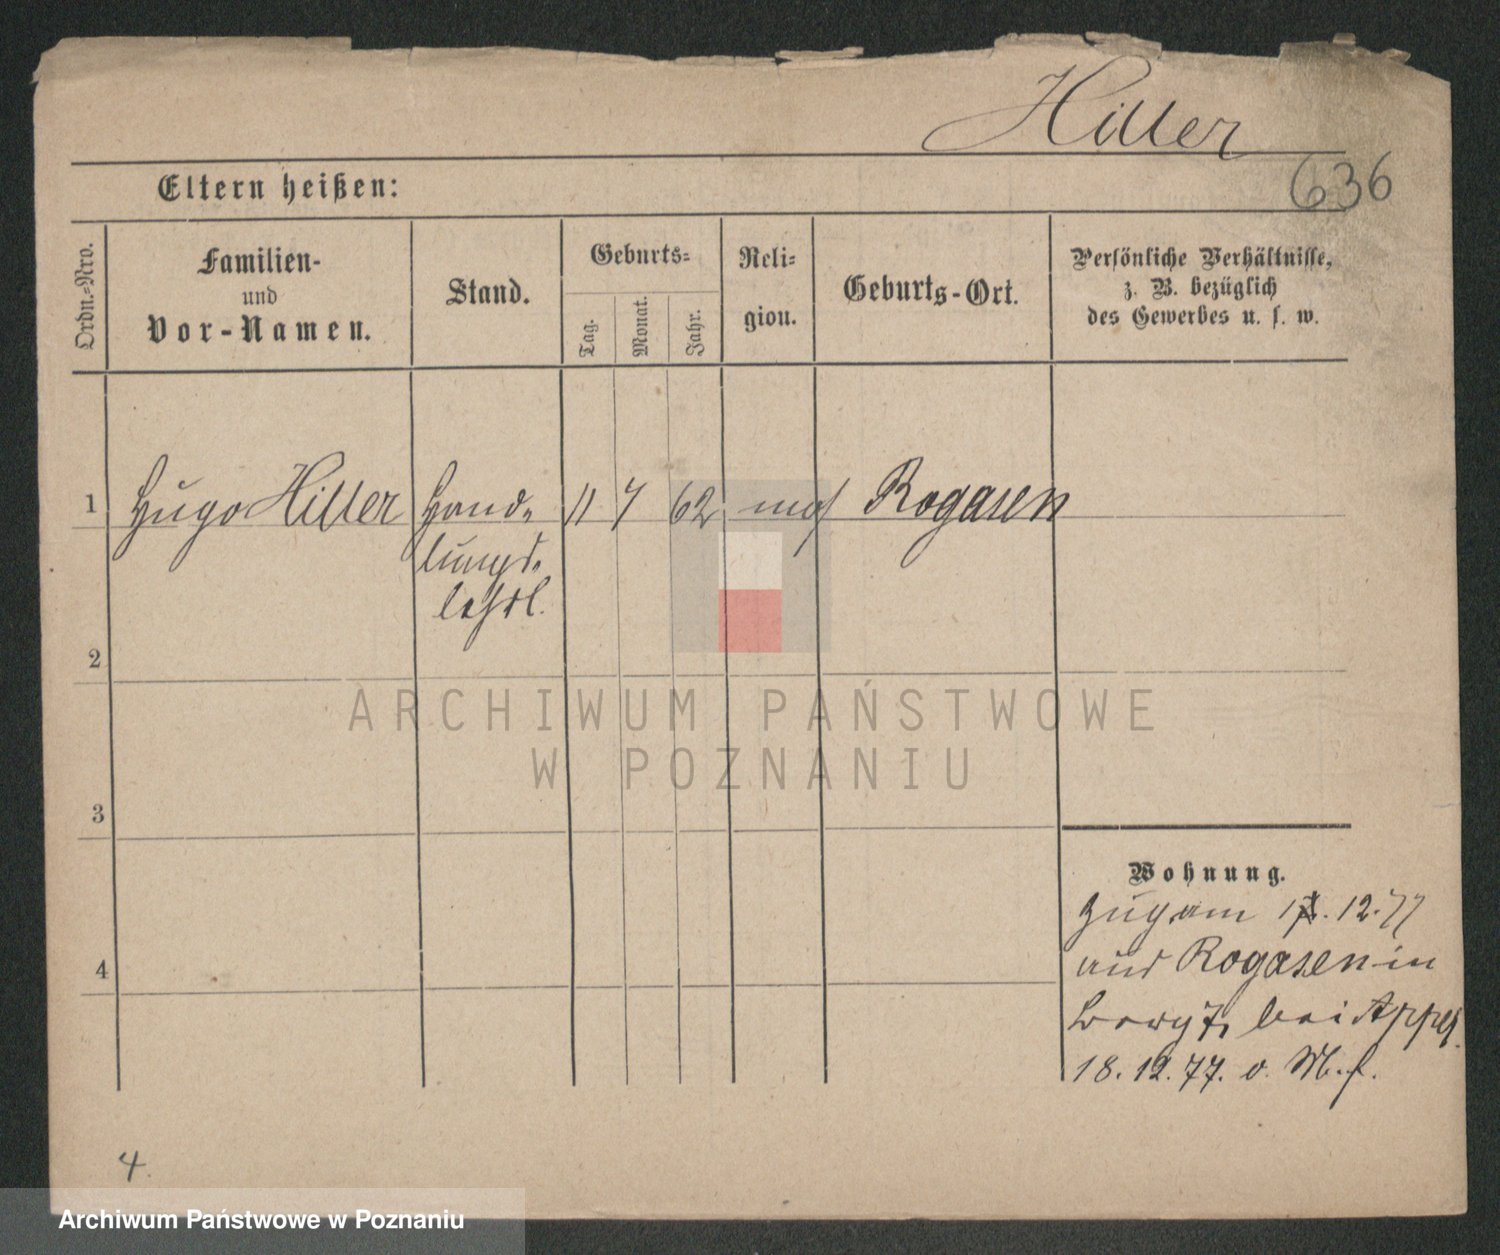 Hiller
636
Eltern heißen:
Ordn.=Nro.
Familien-
und
Vor-Namen.
Stand.
Geburts=
Tag.
Monat.
Jahr.
Reli=
gion.
Geburts-Ort.
Persönliche Verhältnisse,
z. B. bezüglich
des Gewerbes u. s. w.
1 Hugo Hiller Hand= 11 7 62 mos Rogasen
lungs=
lehrl.
2
ARCHIWUM PAŃSTWOWE
W POZNANIU
3
4
Wohnung.
Zug. am 12.77
aus Rogasen in
bei
18.12.77. v.
4.
Archiwum Państwowe w Poznaniu